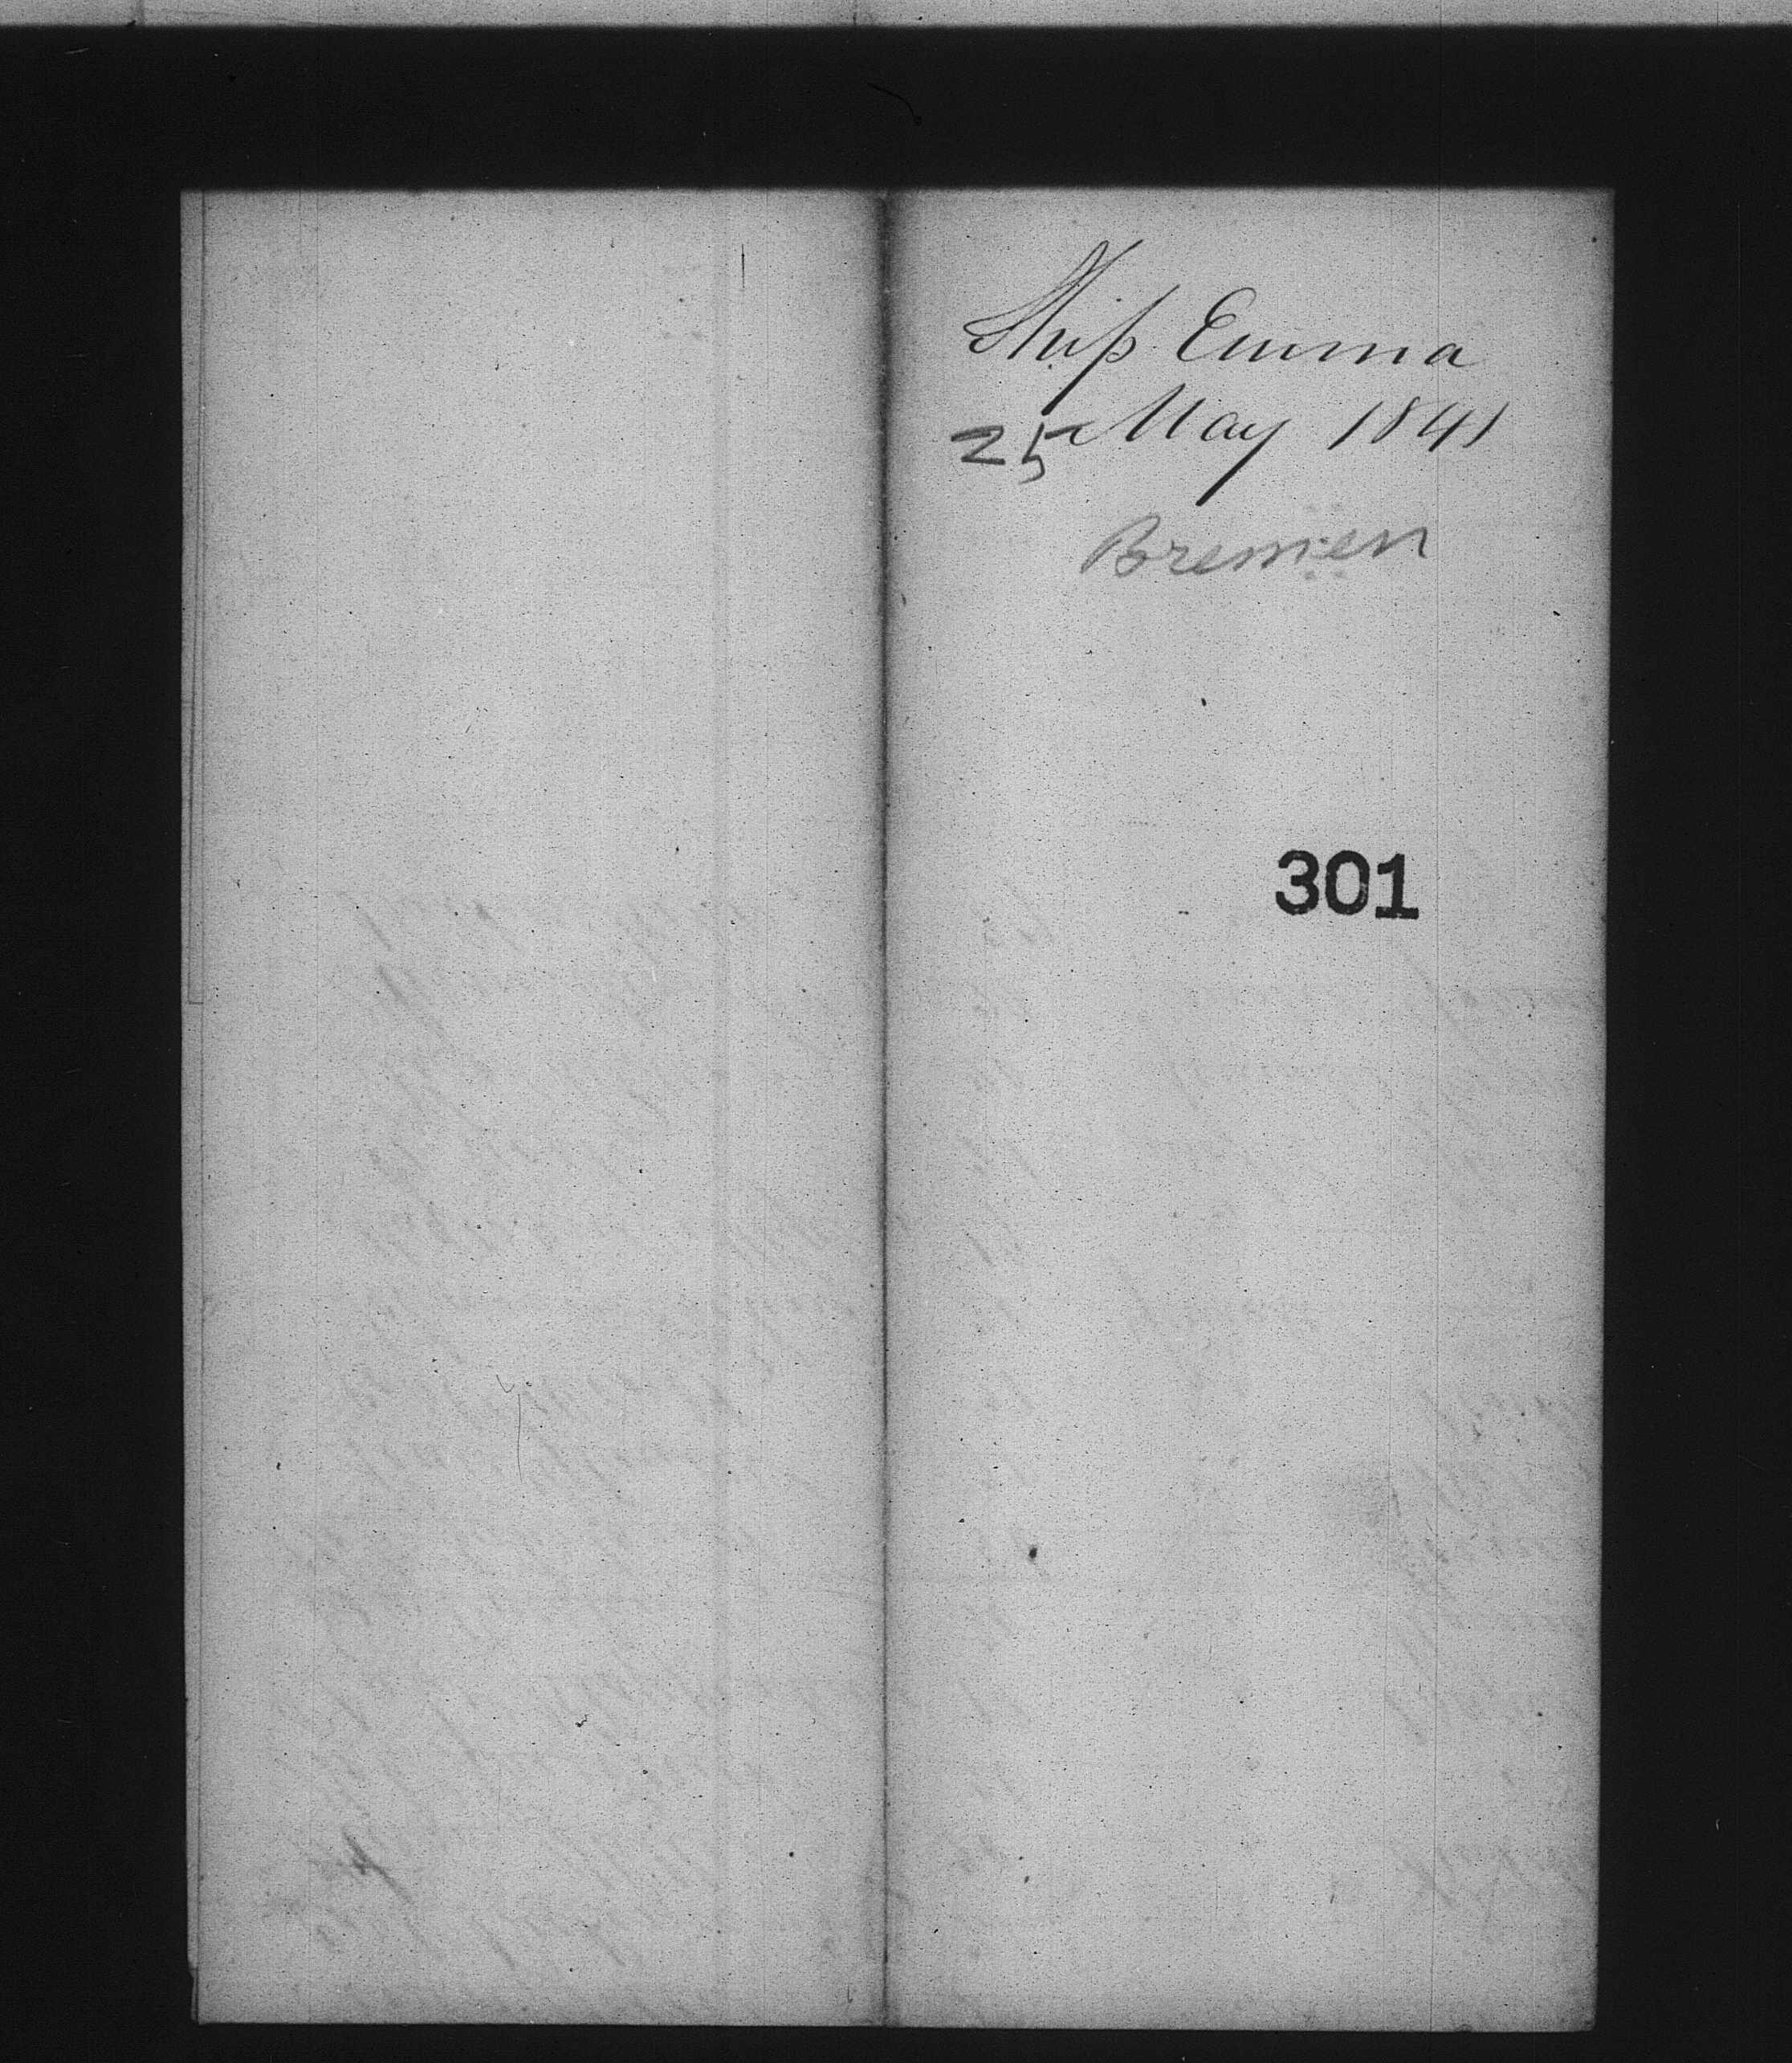 Ship Emma
25 May 1841
Bremen
301